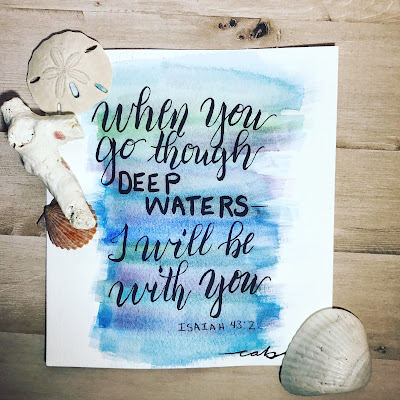 when you
go though
DEEP
WATERS
I will be
with you
ISAIAH 43:2
cab